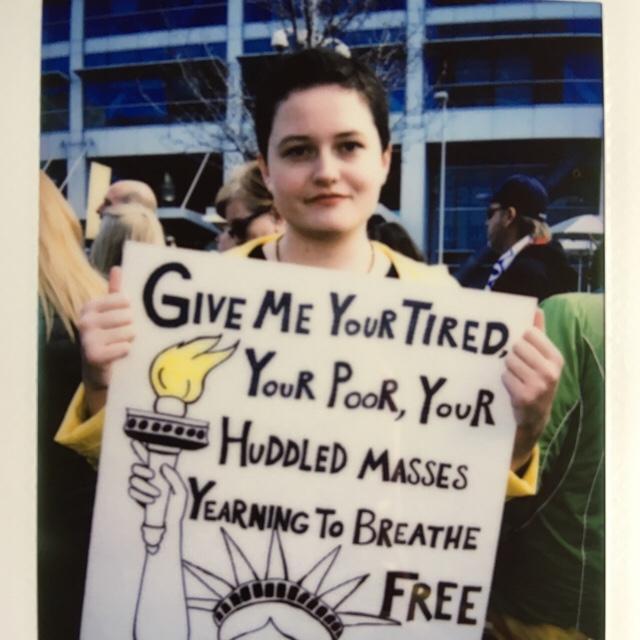 GIVE ME YOUR TIRED,
YOUR POOR, YOUR
HUDDLED MASSES
YEARNING TO BREATHE
FREE